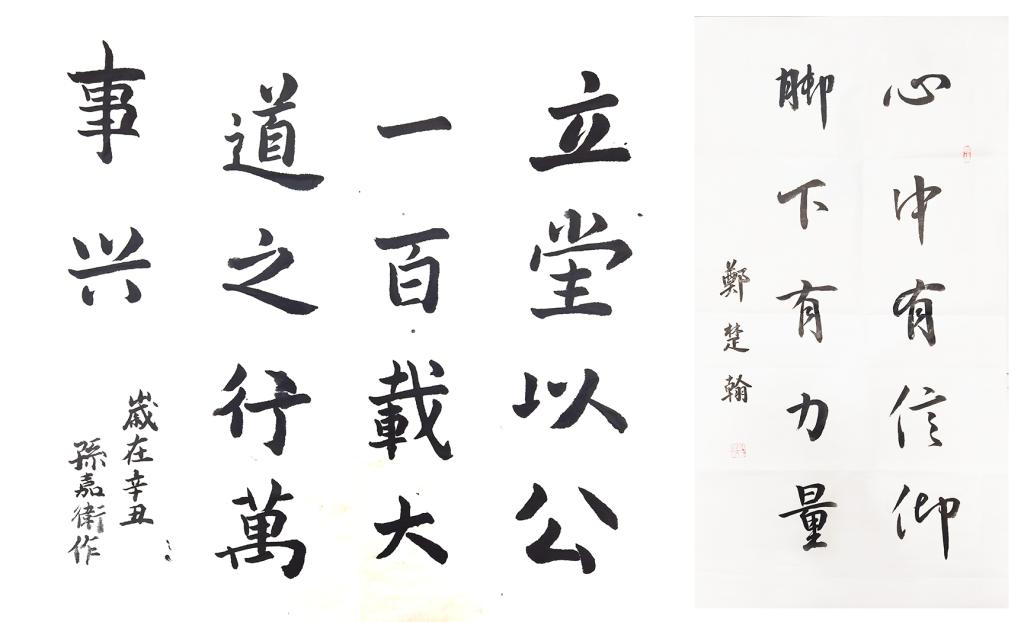 心中有信仰
脚下有力量
鄭楚翰
立堂以公
一百載大
道之行萬
事兴
歲在辛丑
孫嘉衛作